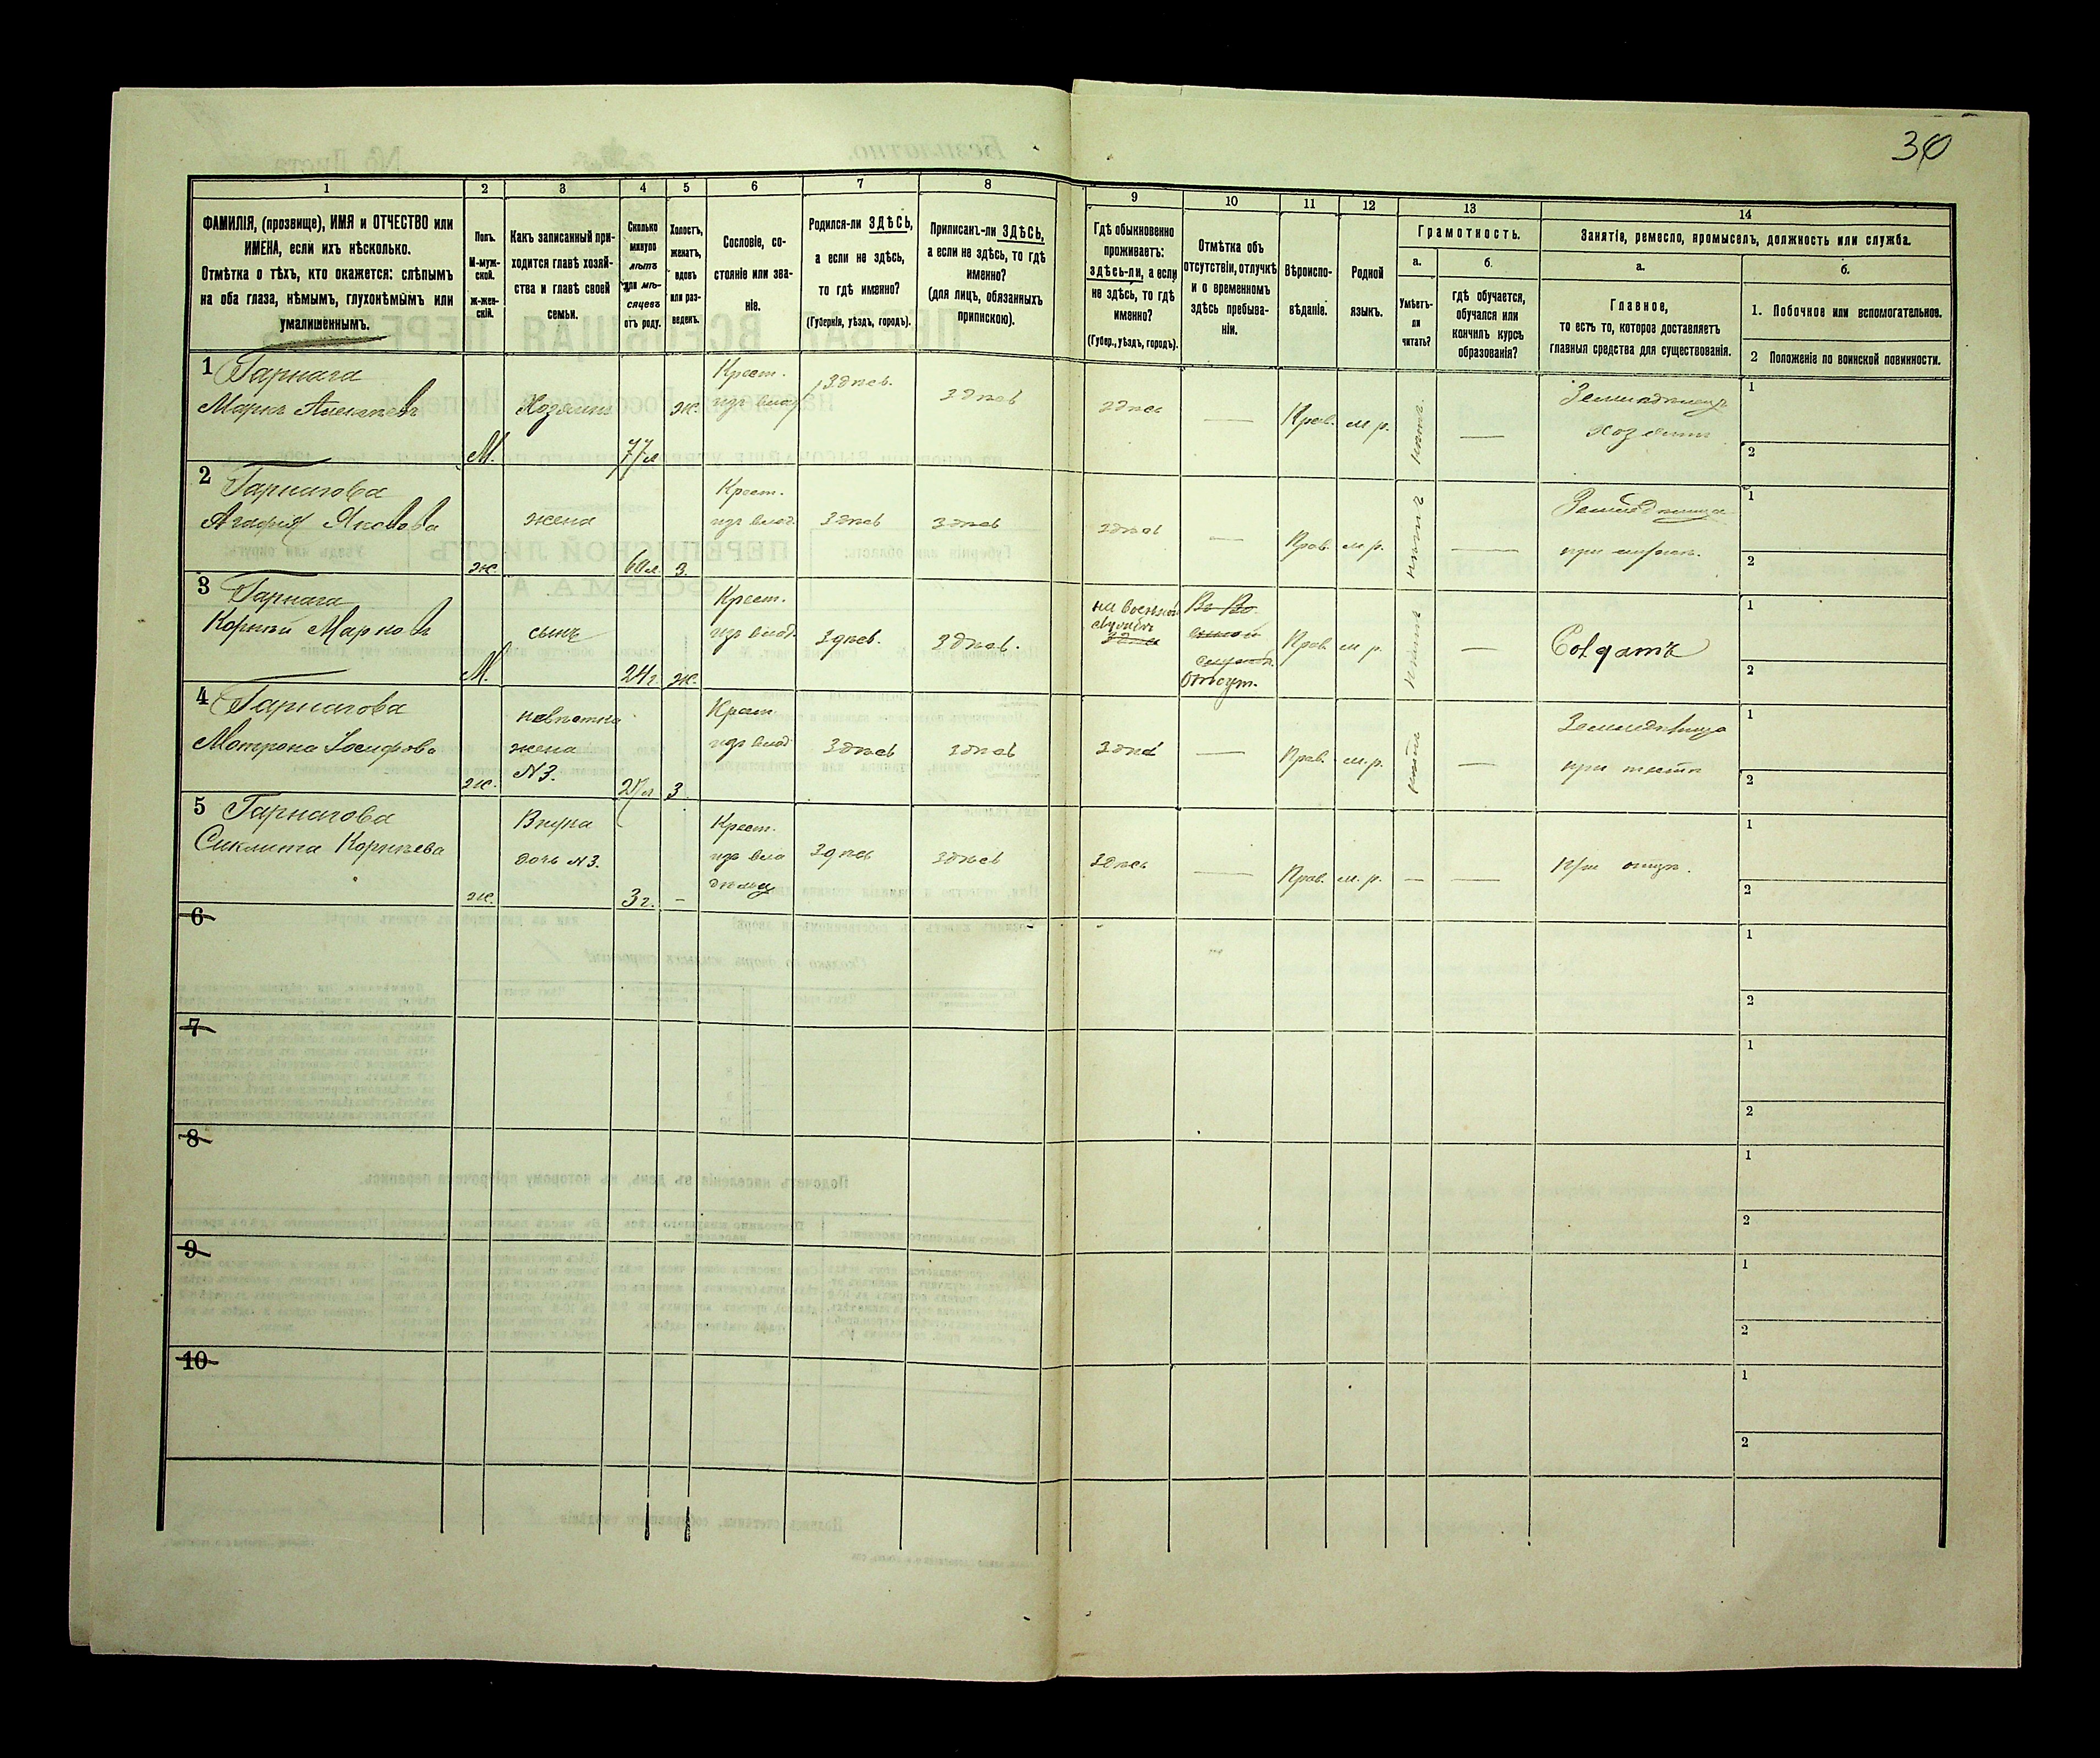 30
1 2 3 4 5 6 7 8 9 10 11 12 13 14
ФАМИЛІЯ, (прозвище), ИМЯ и ОТЧЕСТВО или
ИМЕНА, если ихъ нѣсколько.
Отмѣтка о тѣхъ, кто окажется: слѣпымъ
на оба глаза, нѣмымъ, глухонѣмымъ или
умалишеннымъ.
Полъ.
М-муж-
ской.
ж-жен-
скій.
Какъ записанный при-
ходится главѣ хозяй-
ства и главѣ своей
семьи.
Сколько
минуло
лѣтъ
или мѣ-
сяцевъ
отъ роду.
Холостъ,
женатъ,
вдовъ
или раз-
веденъ.
Сословіе, со-
стояніе или зва-
ніе.
Родился-ли ЗДѢСЬ,
а если не здѣсь,
то гдѣ именно?
(Губернія, уѣздъ, городъ).
Приписанъ-ли ЗДѢСЬ,
а если не здѣсь, то гдѣ
именно?
(для лицъ, обязанныхъ
припискою).
Гдѣ обыкновенно
проживаетъ:
здѣсь-ли, а если
не здѣсь, то гдѣ
именно?
(Губер., уѣздъ, городъ).
Отмѣтка объ
отсутствіи, отлучкѣ
и о временномъ
здѣсь пребыва-
ніи.
Вѣроиспо-
вѣданіе.
Родной
языкъ.
Грамотность.
а.
Умѣетъ-
ли
читать?
б.
гдѣ обучается,
обучался или
кончилъ курсъ
образованія?
Занятіе, ремесло, промыселъ, должность или служба.
а.
Главное,
то есть то, которое доставляетъ
главныя средства для существованія.
б.
1. Побочное или вспомогательное.
2 Положеніе по воинской повинности.
1 Гарнага
Маркъ
М.
Хозяинъ
77 л
ж.
Крест.
изъ влад
Здѣсь.
Здѣсь
здѣсь
—
Прав.
м р.
нѣтъ.
—
Земледѣлецъ
хозяинъ
1
2
2 Гарнагова
Агафія
ж.
жена
60 л.
З.
Крест.
изъ влад.
Здѣсь
Здѣсь
здѣсь
—
Прав.
м р.
нѣтъ
—
при мужѣ.
1
2
3 Гарнага
Корній Марковъ
М.
сынъ
24 г.
ж.
Крест.
изъ влад.
Здѣсь.
Здѣсь.
на военной
службѣ
здѣсь
Отсут.
Прав.
м р.
нѣтъ
—
Солдатъ
1
2
4 Гарнагова
Матрона Іосифова
ж.
невѣстка
жена
N 3.
27 л
З.
Крест
изъ влад
Здѣсь
Здѣсь
Здѣсь
—
Прав.
м. р.
нѣтъ
—
при тестѣ
1
2
5 Гарнагова
Сиклита Корніева
ж.
Внука
дочь N 3.
3 г.
–
Крест.
изъ вла
дѣльц
Здѣсь
Здѣсь
Здѣсь
—
Прав.
м. р.
–
—
При отцѣ.
1
2
6
1
2
7
1
2
8
1
2
9
1
2
10
1
2